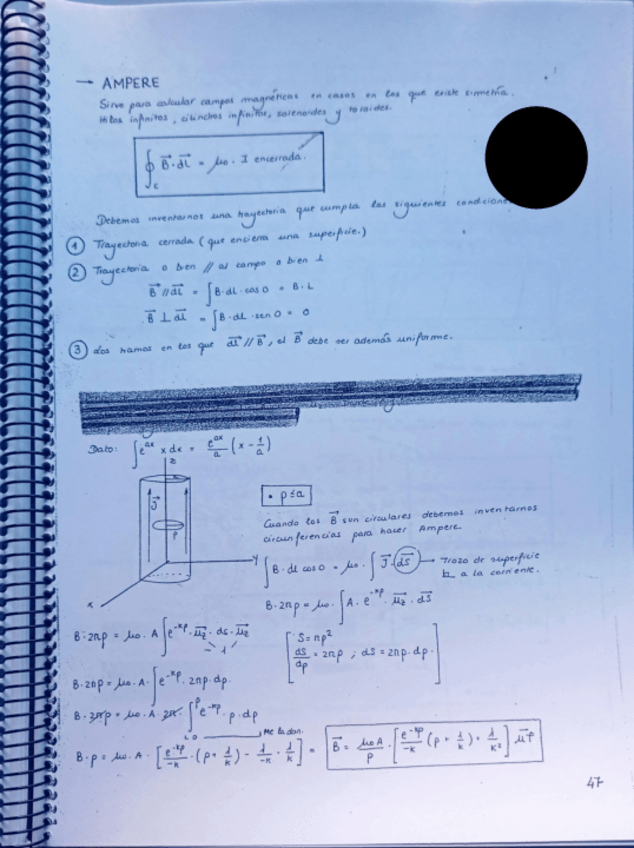 → AMPERE
Sirve para calcular campos magnéticos en casos en los que existe simetría.
Hilos infinitos, cilindros infinitos, solenoides y toroides.
∮c B⃗·dL⃗ = μo · I encerrada.
Debemos inventarnos una trayectoria que cumpla las siguientes condicione
① Trayectoria cerrada (que encierra una superficie.)
② Trayectoria o bien // al campo o bien ⊥
B⃗ // dL⃗ = ∫B·dL·cos0 = B·L
B⃗ ⊥ dL⃗ = ∫B·dL·sen0 = 0
③ Los tramos en los que dL⃗ // B⃗, el B⃗ debe ser además uniforme.
Dato: ∫e^{ax} x dx = e^{ax}/a (x - 1/a)
z
J⃗
ρ
y
x
• ρ≤a
Cuando los B⃗ son circulares debemos inventarnos
circunferencias para hacer Ampere.
∫B·dL cos0 = μo · ∫J⃗·dS⃗ → Trozo de superficie
⊥ a la corriente.
B·2πρ = μo · ∫A·e^{-kρ}·u⃗z·dS⃗
B·2πρ = μo · A ∫e^{-kρ}·u⃗z·ds·u⃗z
1
[S=πρ²
dS/dρ = 2πρ ; dS = 2πρ·dρ]
B·2πρ = μo·A·∫e^{-kρ}·2πρ·dρ.
B·2πρ = μo·A 2π·∫₀^ρ e^{-kρ}·ρ·dρ
Me la dan.
B·ρ = μo·A·[e^{-kρ}/-k·(ρ+1/k) - 1/-k·1/k] = B⃗ = μoA/ρ·[e^{-kρ}/-k(ρ+1/k)+1/k²] u⃗φ
47